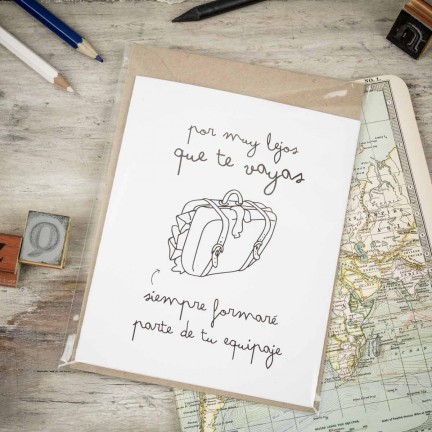 por muy lejos
que te vayas
siempre formaré
parte de tu equipaje